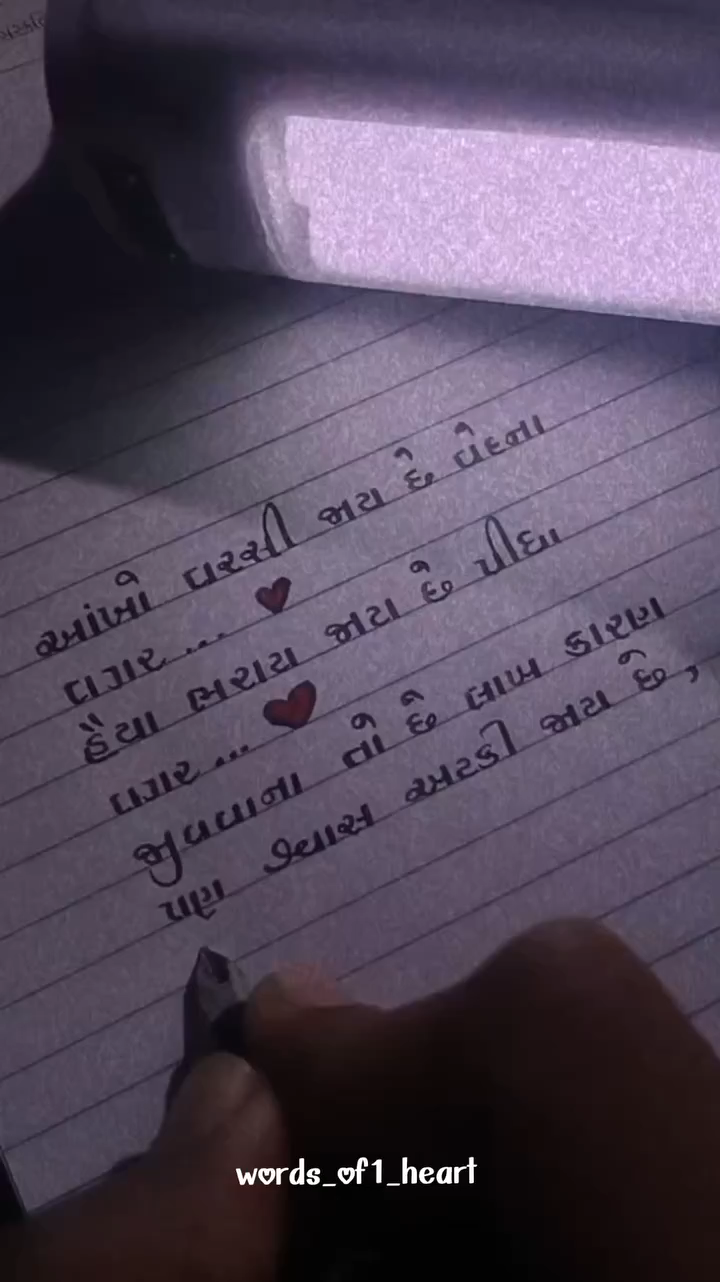 આંખો વરસી જાય છે વેદના
વગર... ❤
હૈયા ભરાય જાય છે પીધા
વગર... ❤
જીવવાના તો છે લાખ કારણ
પણ શ્વાસ અટકી જાય છે,
words_of1_heart